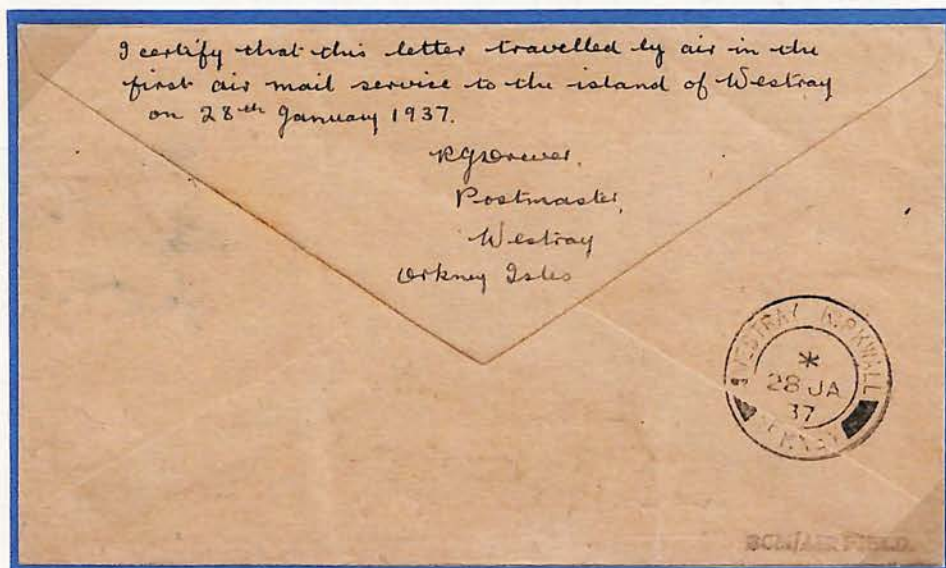 I certify that this letter travelled by air in the
first air mail service to the island of Westray
on 28th January 1937.
RGDrever,
Postmaster,
Westray
Orkney Isles
WESTRAY KIRKWALL
*
28 JA
37
ORKNEY
BCM/AIRFIELD.